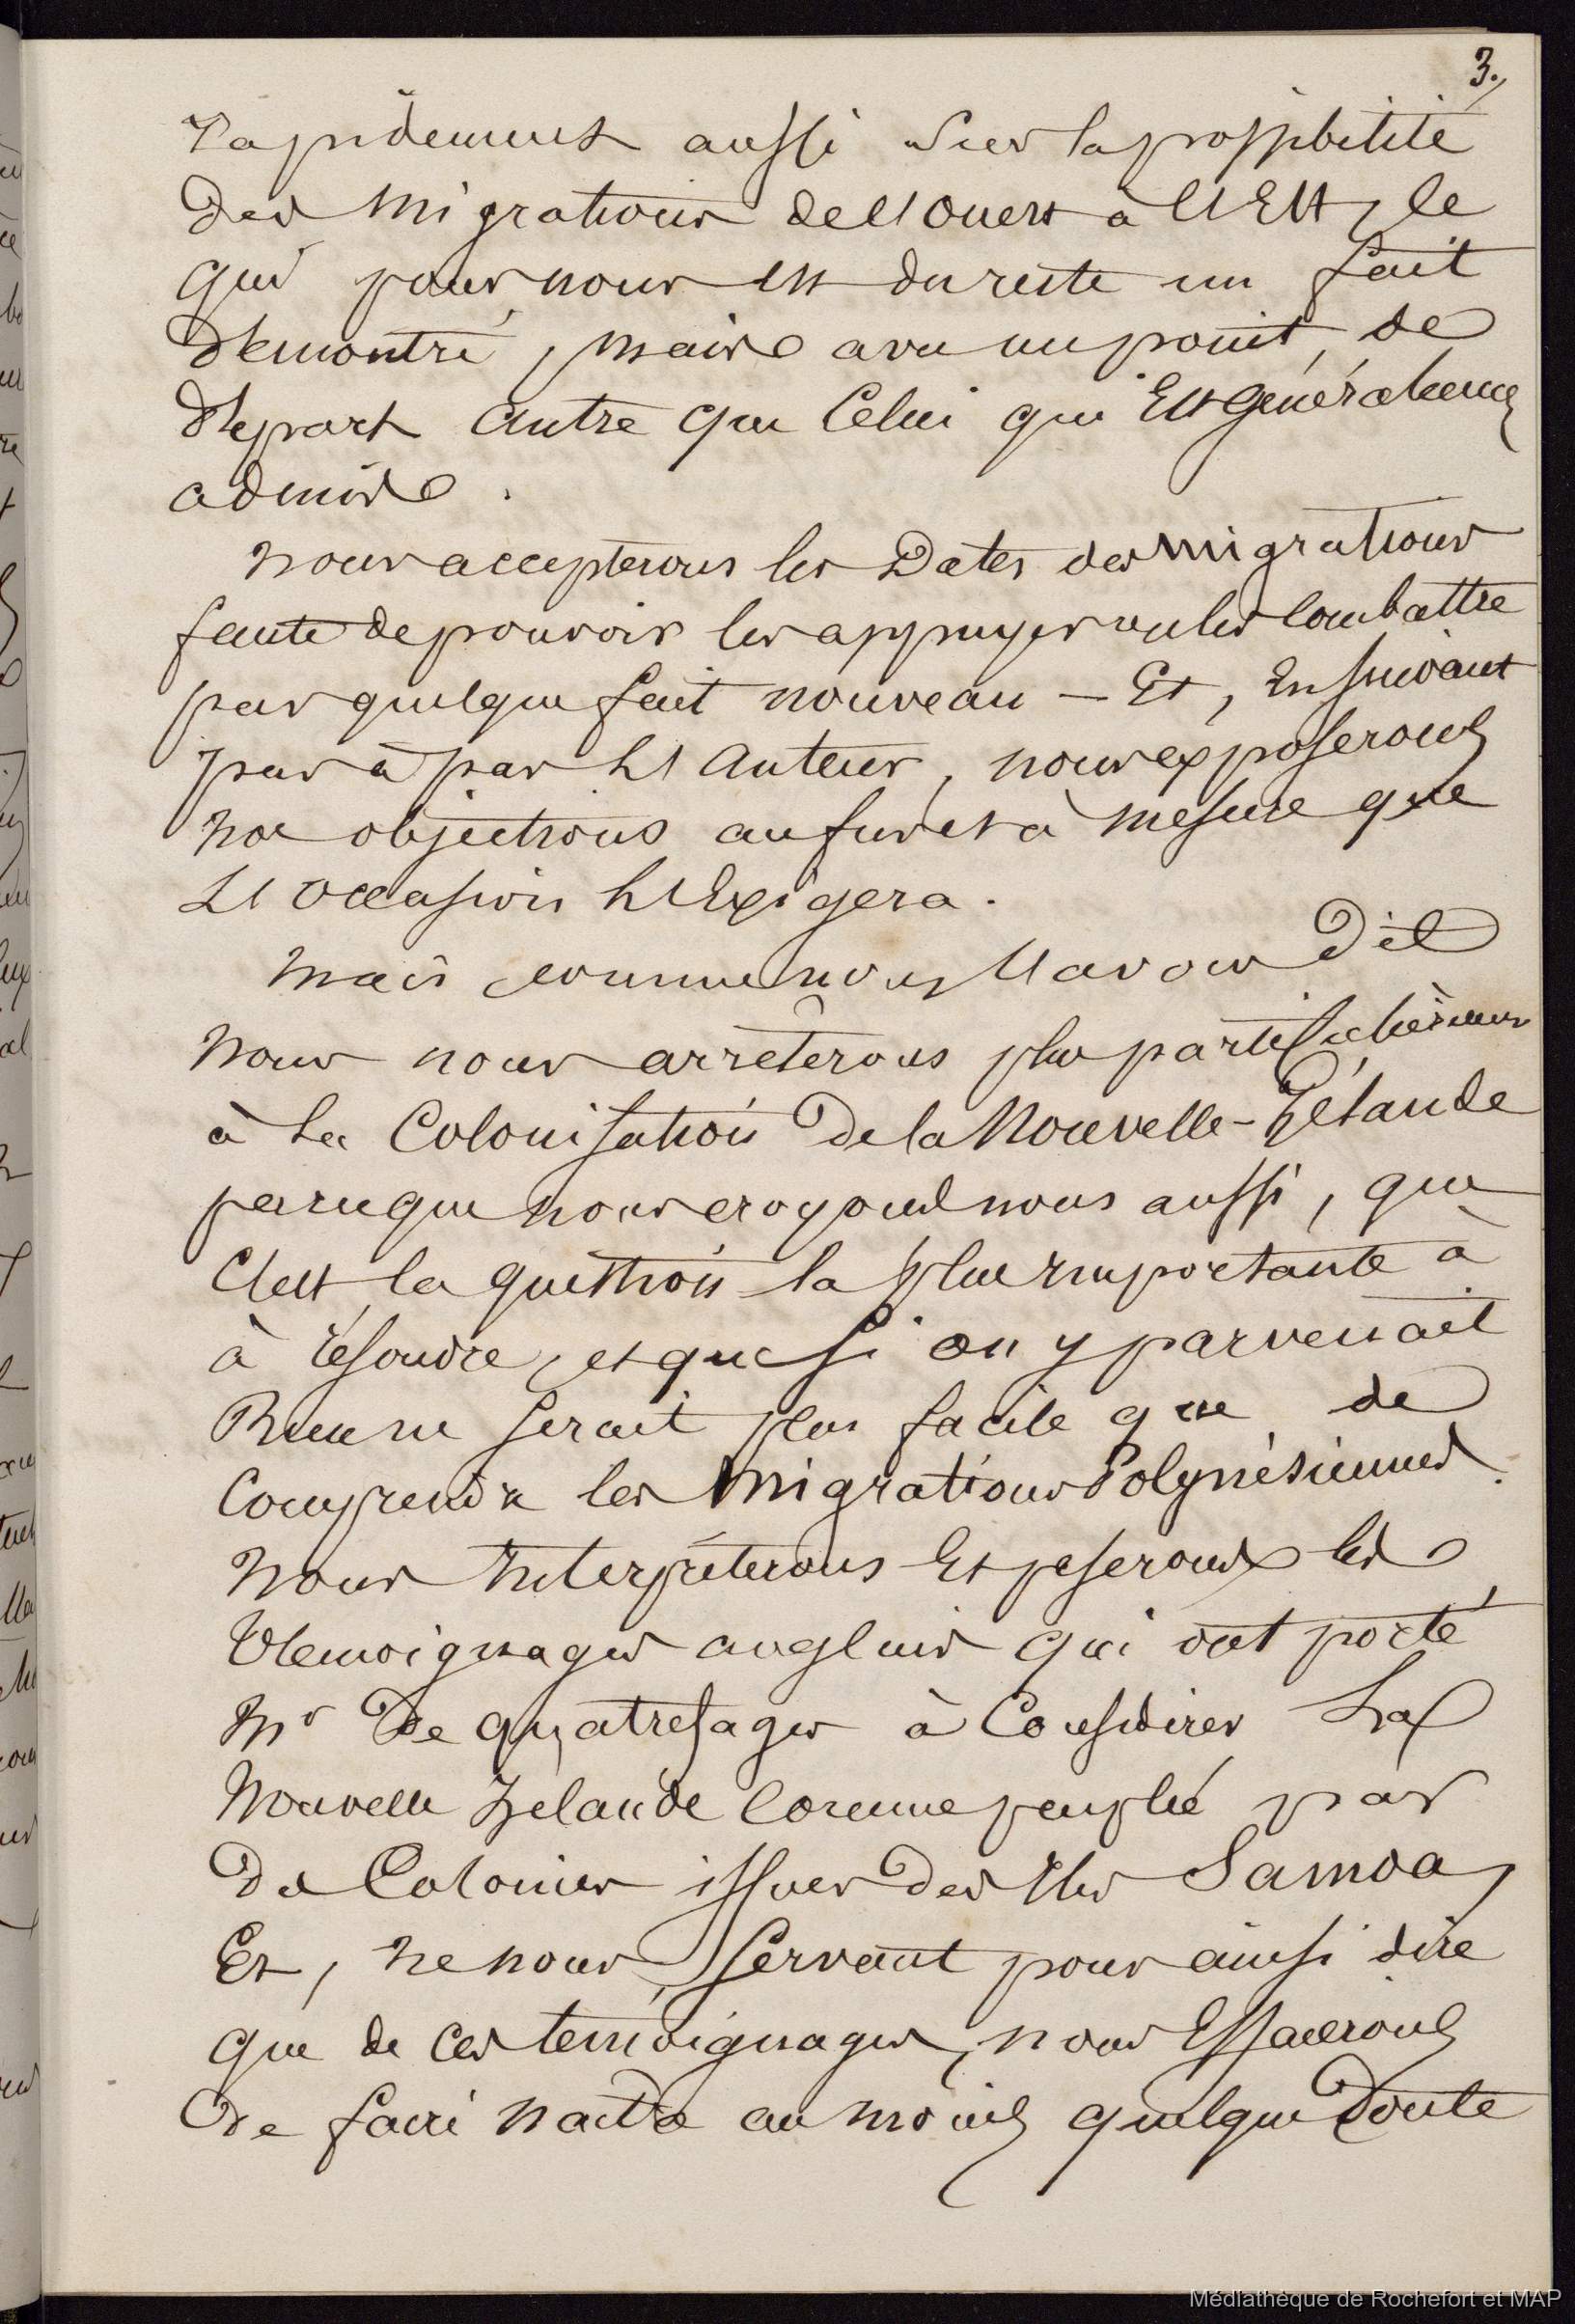 3.
rapidement aussi sur la possibilité
des migrations de l'ouest à l'Est, ce
qui pour nous est du reste un fait
démontré, mais avec un point de
départ autre que celui qui Est généralement
admis.
Nous accepterons les Dates des migrations
faute de pouvoir les appuyer ou les combattre
par quelque fait nouveau — Et, En suivant
pas à pas L'Auteur, nous exposerons
nos objections au fur et à mesure que
L'occasion L'Exigera.
Mais comme nous l'avons Dit
Nous nous arrêterons plus particulièrement
à La Colonisation De la Nouvelle-Zélande
parceque nous croyons nous aussi, que
C'est la question la plus importante à
à résoudre, et que si on y parvenait
Rien ne serait plus facile que de
Comprendre les Migrations Polynésiennes.
Nous Interpréterons Et peserons les
témoignages anglais qui ont porté
Mr De Quatrefages à Considérer La
Nouvelle Zélande Comme peuplée par
Des Colonies issues Des Iles Samoa,
Et, ne nous servant pour ainsi dire
que de ces témoignages, nous Essaierons
De faire naitre au moins quelque Doute